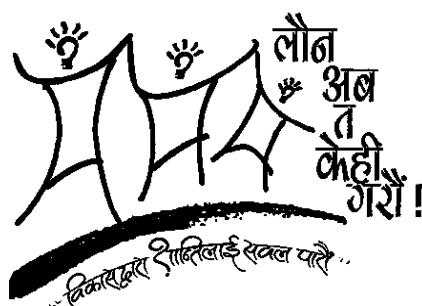 लौन
अब
त
केही
गरौं !
"विकासद्वारा शान्तिलाई सवल पारौं"